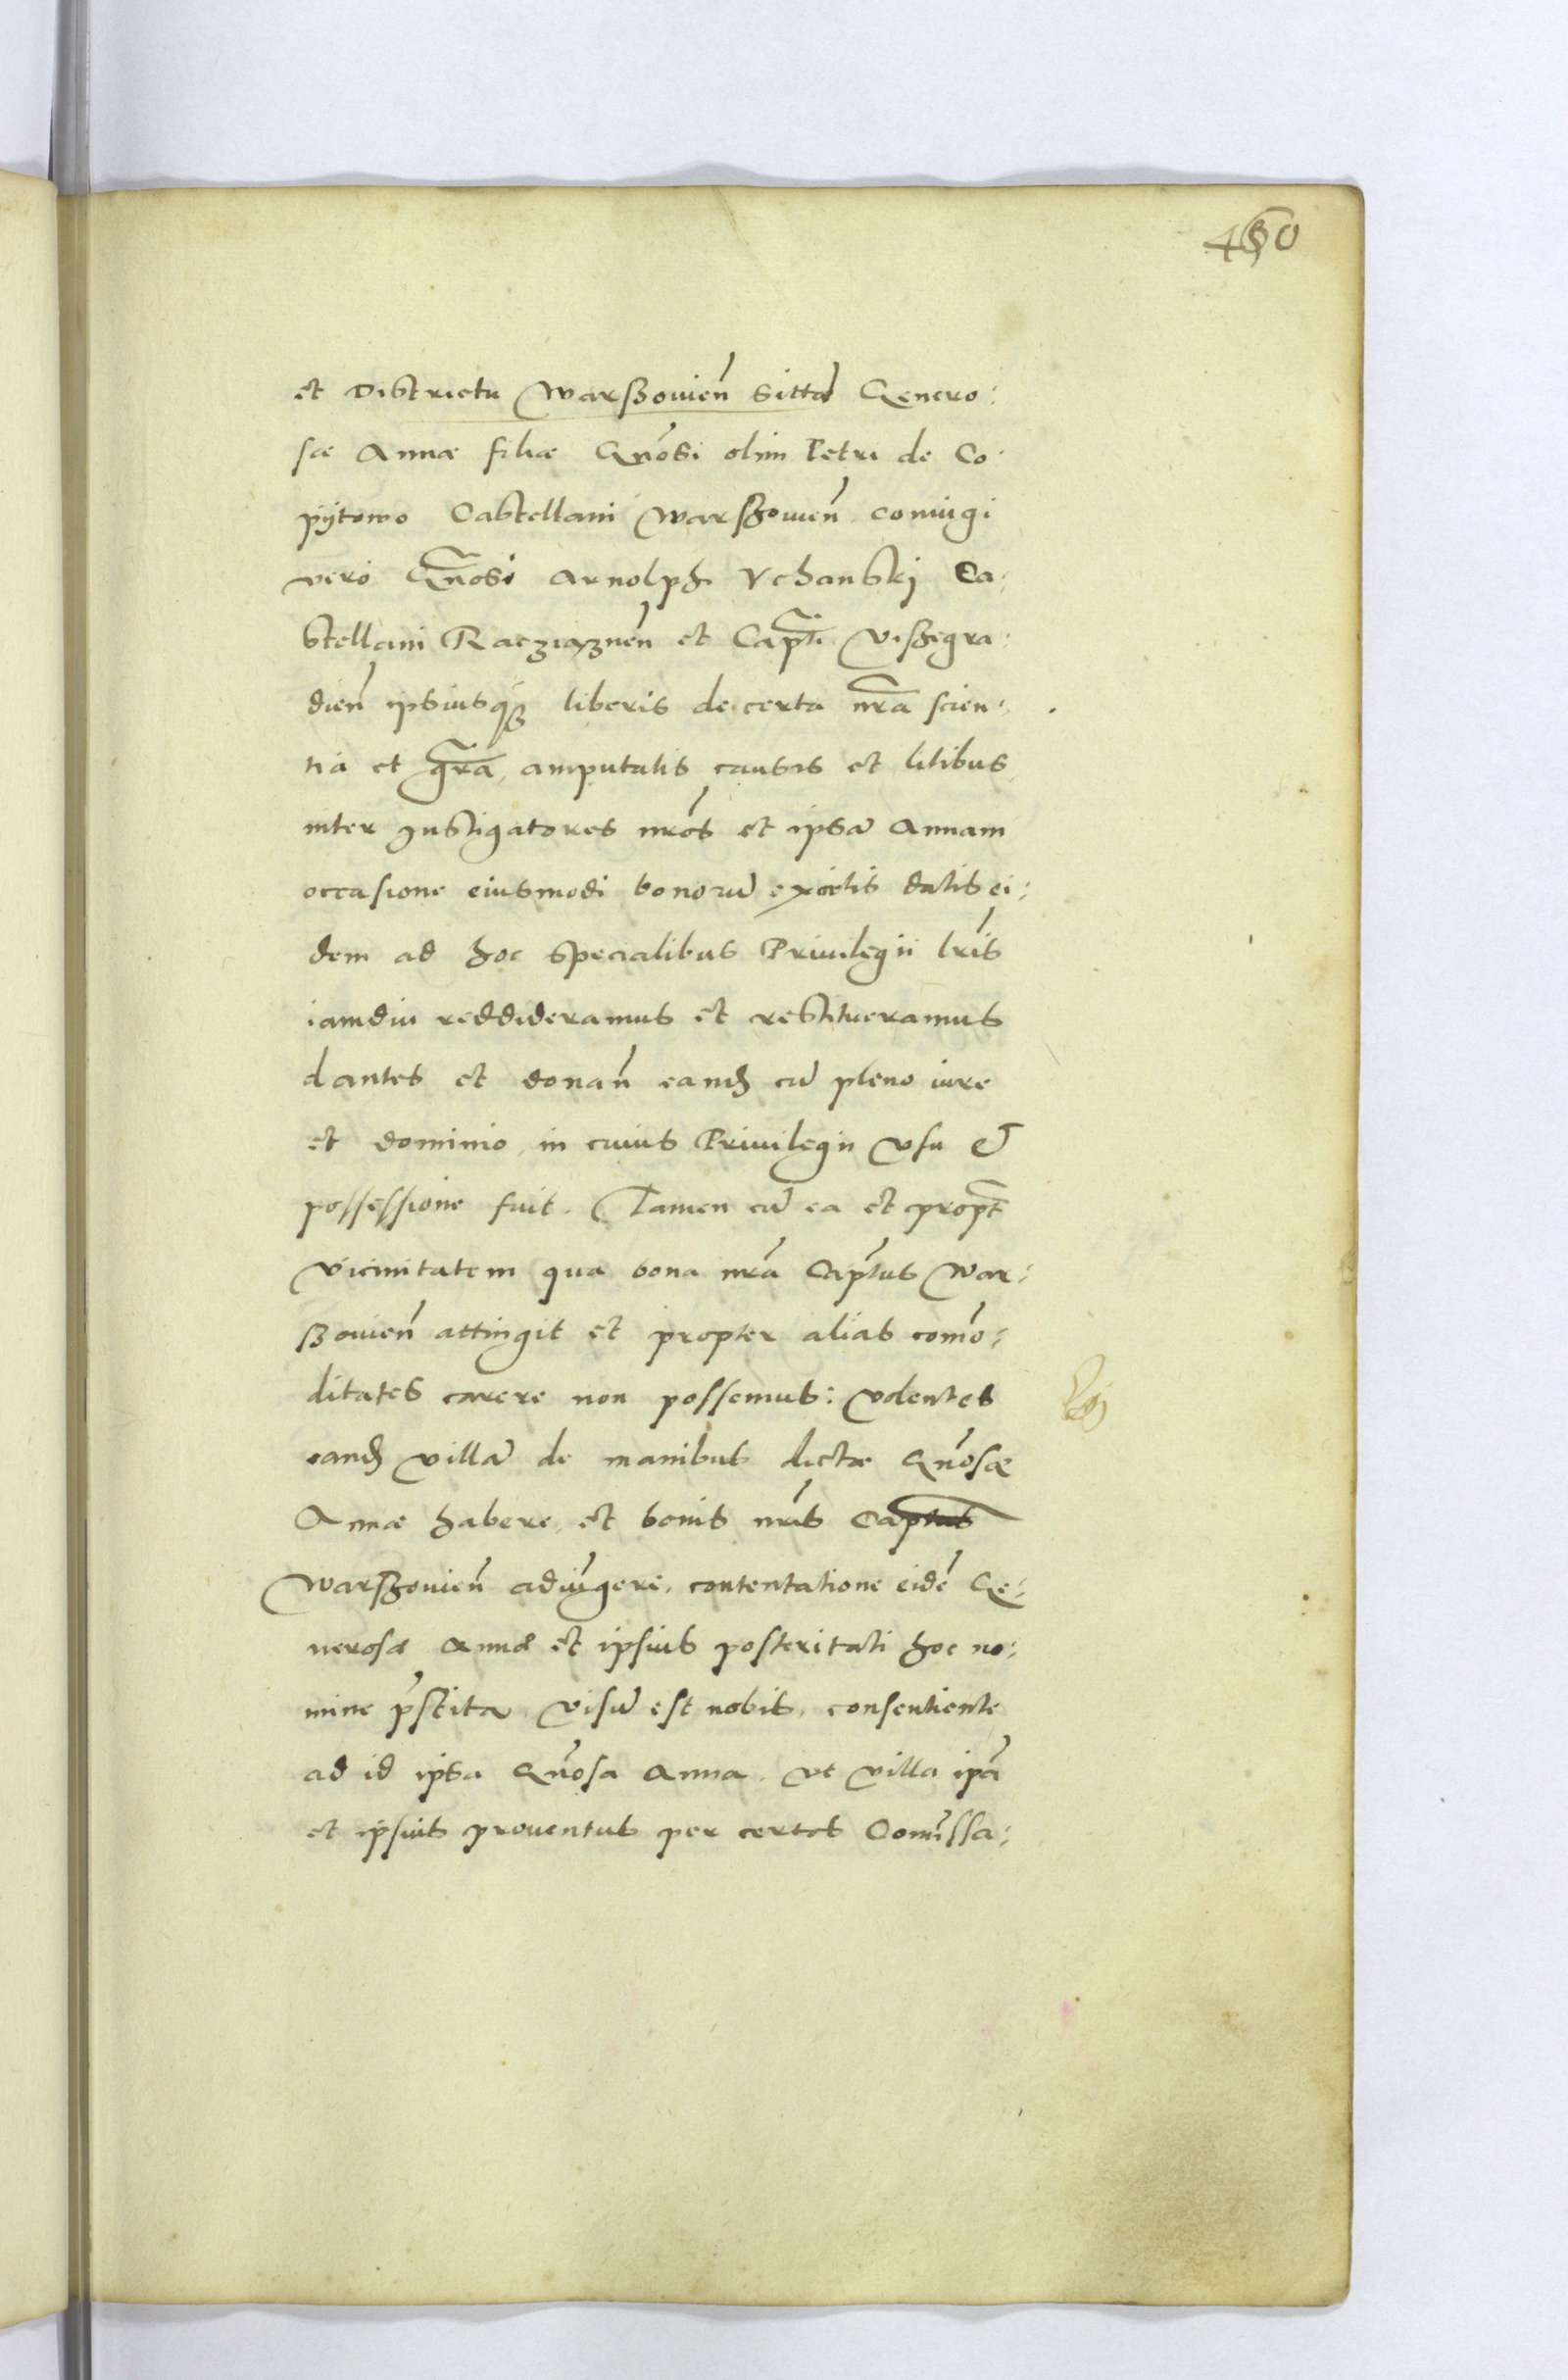 et Districtu Warßouien̄ sittā Genero:
sæ Annæ filiæ Gn̄osi olim Petri de Co:
pÿtowo Castellani Warßouien̄ coniugi
vero Gn̄osi Arnolphi Vchanskj Ca:
stellani Racziąznen̄ et Capt̄i Vißegra:
dien̄ ipsiusq̢ liberis de certa nr̄a scien:
tia et gr̄a, amputatis causis et litibus
inter Instigatores nr̄os et ipsā Annam
occasione eiusmodi bonorū exortis datis ei:
dem ad hoc specialibus Priuilegii lr̄is
iamdiu reddideramus et restitueramus
dantes et donan̄ eandē cū pleno iure
et dominio, in cuius Priuilegii vsu et
possessione fuit. Tamen cū ea et propt̄
vicinitatem qua bona nr̄a Capt̄us War:
ßouien̄ attingit et propter alias com̄o:
ditates carere non possemus: volentes
eandē villā de manibus dictæ Gn̄osæ
Annæ habere, et bonis nr̄is Capt̄us
Warßouien̄ adiūgere, contentatione eidē Ge:
nerosæ Annæ et ipsius posteritati hoc no:
mine p̄stita, visū est nobis, consentiente
ad id ipsa Gn̄osa Anna, vt villa ip̄a
et ipsius prouentus per certos Com̄issa: